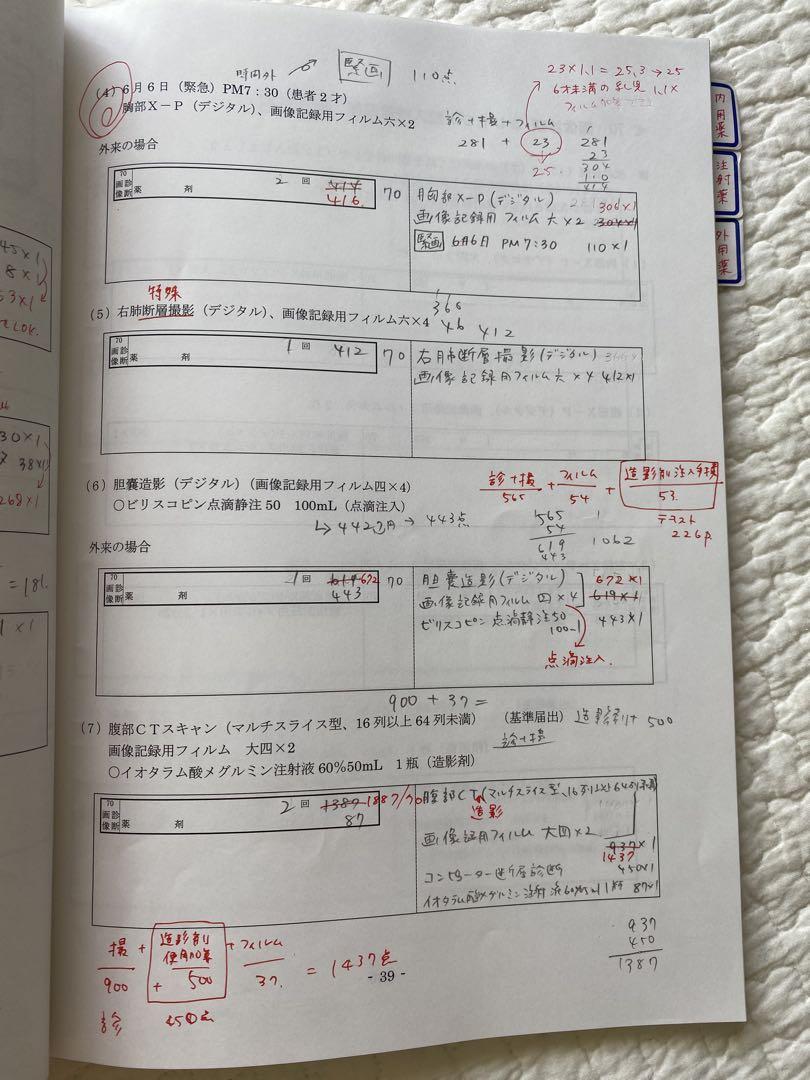 時間外 → 緊画 110点
23×1.1=25.3→25
6才未満の乳児 1.1×
(4) 6月6日（緊急）PM7：30（患者2才）
胸部X－P（デジタル）、画像記録用フィルム六×2
診＋撮＋フィルム
281 + 23
25.
281
23
304
110
414
内用薬
注射薬
外用薬
外来の場合
70
画診
像断
薬 剤 2 回 414
416.
70
胸部X-P(デジタル)
306×1
画像記録用フィルム 大×2 304×1
緊画 6月6日 PM 7:30 110×1
特殊
(5) 右肺断層撮影（デジタル）、画像記録用フィルム六×4
366
46 412
70
画診
像断
薬 剤 1 回 412
70
右肺断層撮影(デジタル)
画像記録用フィルム 六×4 412×1
(6) 胆嚢造影（デジタル）（画像記録用フィルム四×4）
○ビリスコピン点滴静注50 100mL（点滴注入）
↳442円→443点
診＋撮 + フィルム + 造影剤注入手技
565 54 53.
テキスト
226p
565
54
619
443
1062
外来の場合
70
画診
像断
薬 剤 1 回 619 672
443
70
胆嚢造影(デジタル) 672×1
画像記録用フィルム 四×4 619×1
ビリスコピン点滴静注50
100 1 443×1
点滴注入.
900+37=
(7) 腹部CTスキャン（マルチスライス型、16列以上64列未満） （基準届出）
造影剤+500
診+撮
画像記録用フィルム 大四×2
○イオタラム酸メグルミン注射液60％50mL 1瓶（造影剤）
70
画診
像断
薬 剤 2 回 1387 1887
87
70
腹部CT(マルチスライス型、16列以上64列未満)
造影
画像記録用フィルム 大四×2
937×1
1437
コンピューター断層診断 450×1
イオタラム酸メグルミン注射液 87×1
937
450
1387
撮 + 造影剤使用加算 + フィルム
900 + 500 37. = 1437点
診 450点
- 39 -
45×1
8×1
53×1
OK.
30×1
38×1
268×1
= 181.
1 ×1